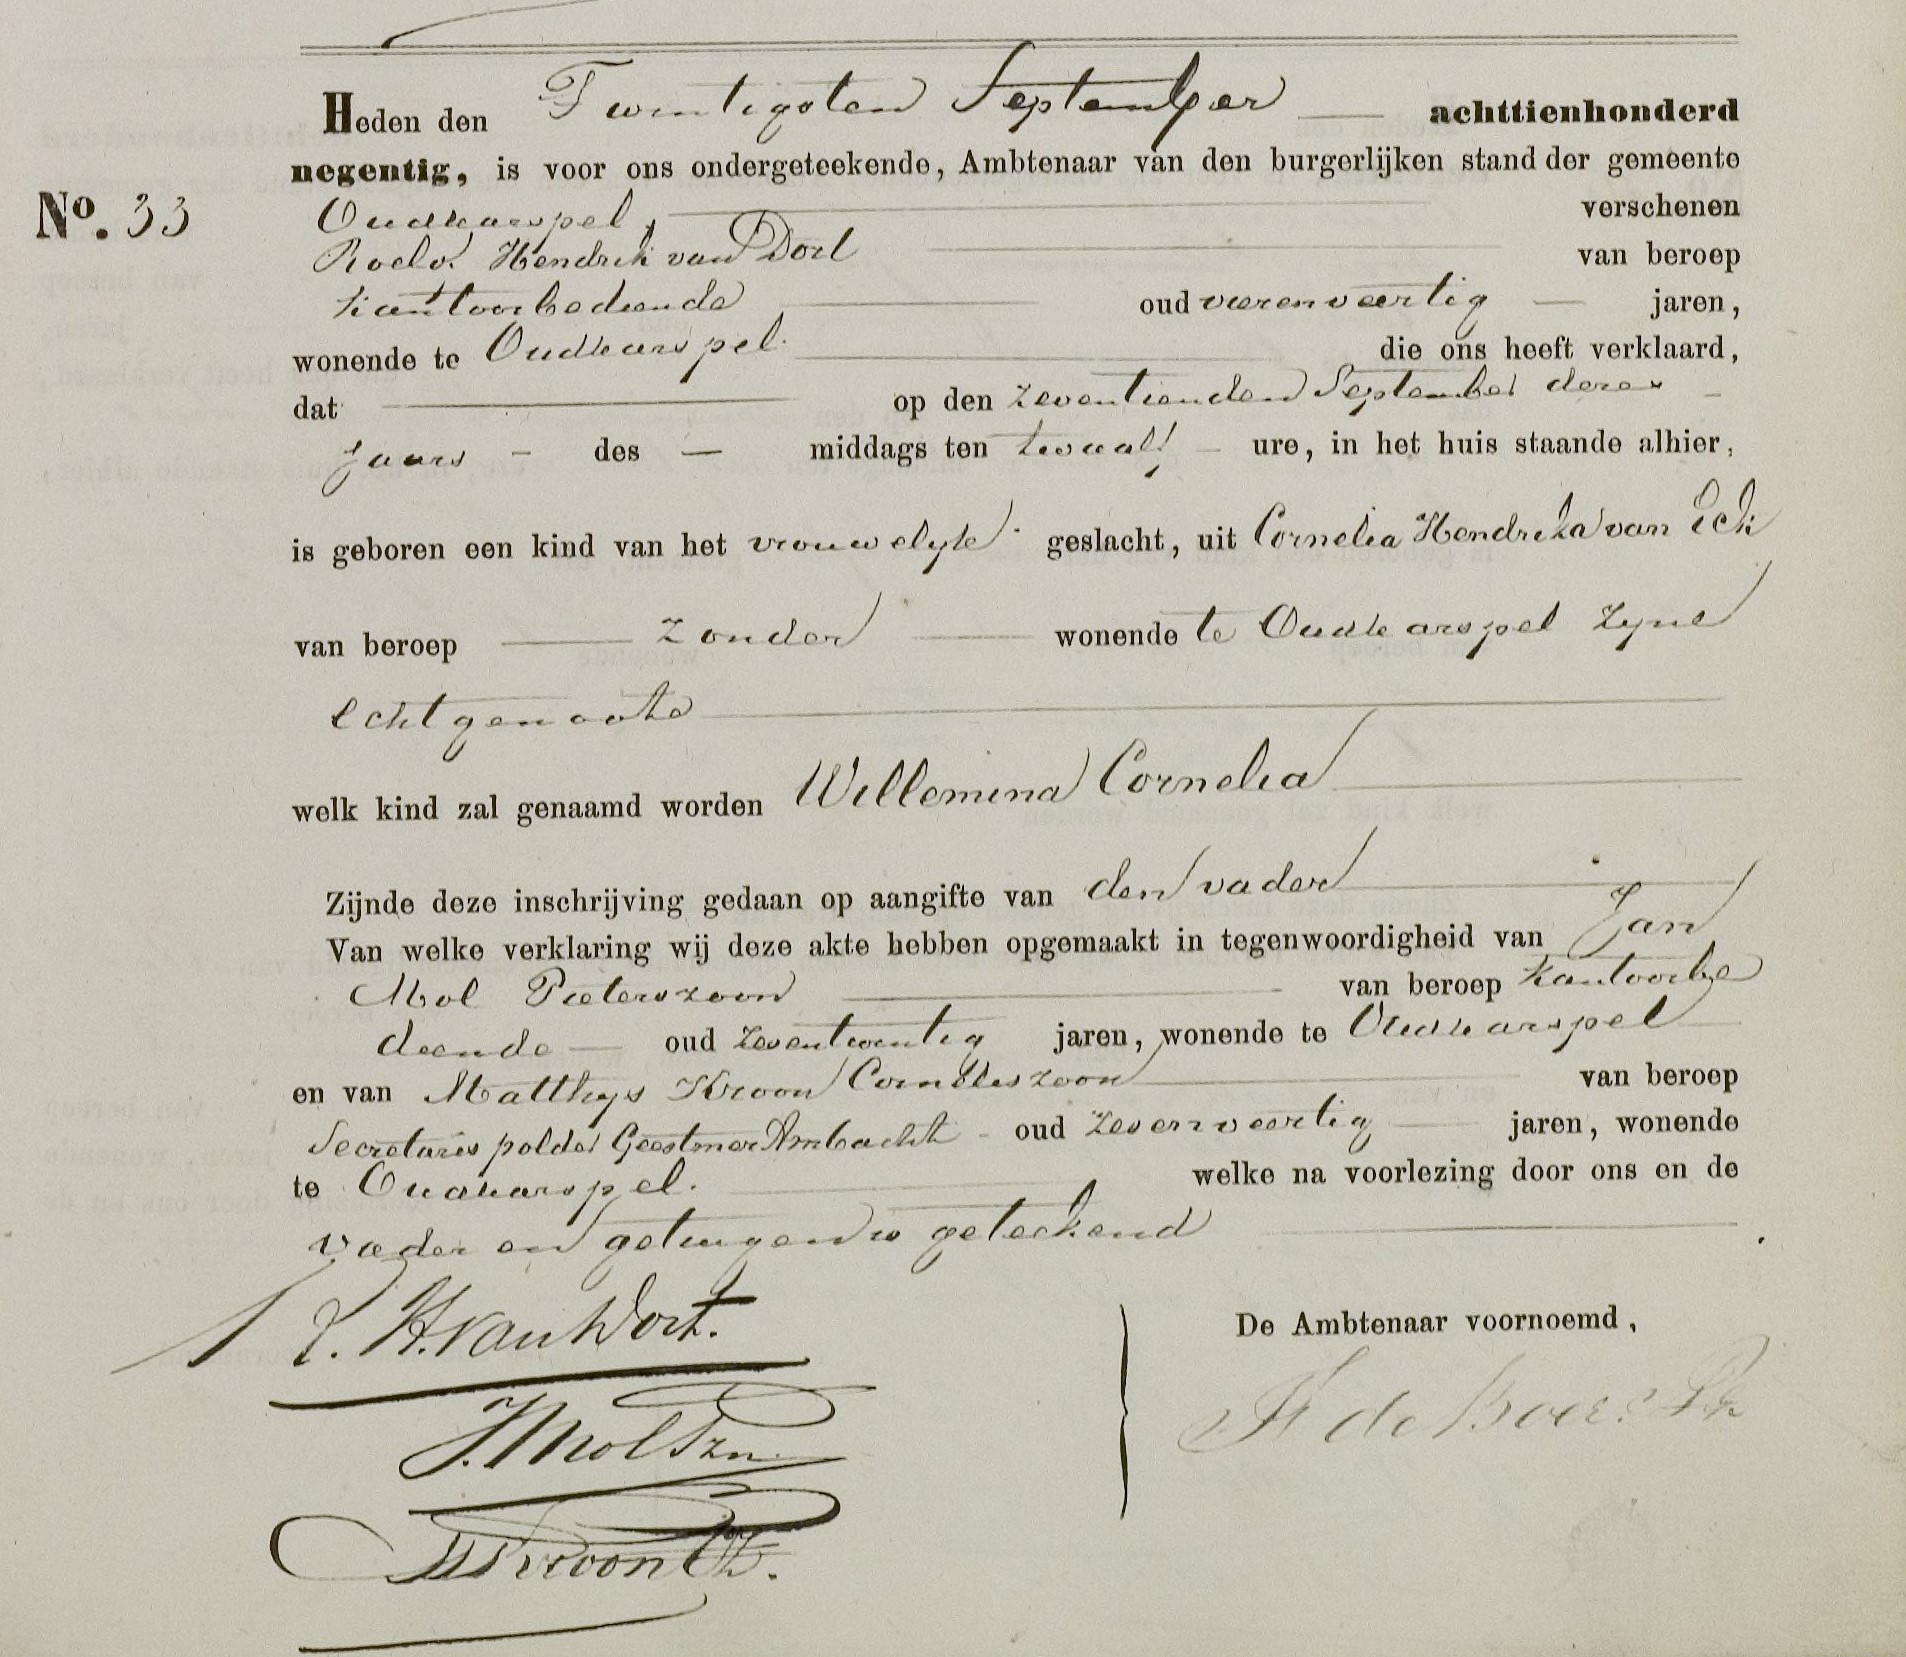 Heden den Twintigsten September achttienhonderd
negentig, is voor ons ondergeteekende, Ambtenaar van den burgerlijken stand der gemeente
No. 33 Oudkarspel, verschenen
Hendrik van Dort van beroep
kantoorbediende oud vierenveertig jaren,
wonende te Oudkarspel. die ons heeft verklaard,
dat op den zeventienden September dezes
jaars - des — middags ten twaalf ure, in het huis staande alhier,
is geboren een kind van het vrouwelijk geslacht, uit Cornelia Hendrika van Eck
van beroep zonder wonende te Oudkarspel zijne
echtgenoote
welk kind zal genaamd worden Willemina Cornelia
Zijnde deze inschrijving gedaan op aangifte van den vader
Van welke verklaring wij deze akte hebben opgemaakt in tegenwoordigheid van Jan
Mol Pieterszoon van beroep kantoorbe
diende oud zeventwintig jaren, wonende te Oudkarspel
en van Matthijs Kroon Corneliszoon van beroep
Secretaris polder Geestmer Ambacht oud zevenveertig jaren, wonende
te Oudkarspel. welke na voorlezing door ons en de
vader en getuigen is geteekend
H. van Dort.
De Ambtenaar voornoemd,
J. Mol Pzn.
de Boer
Kroon Cz.